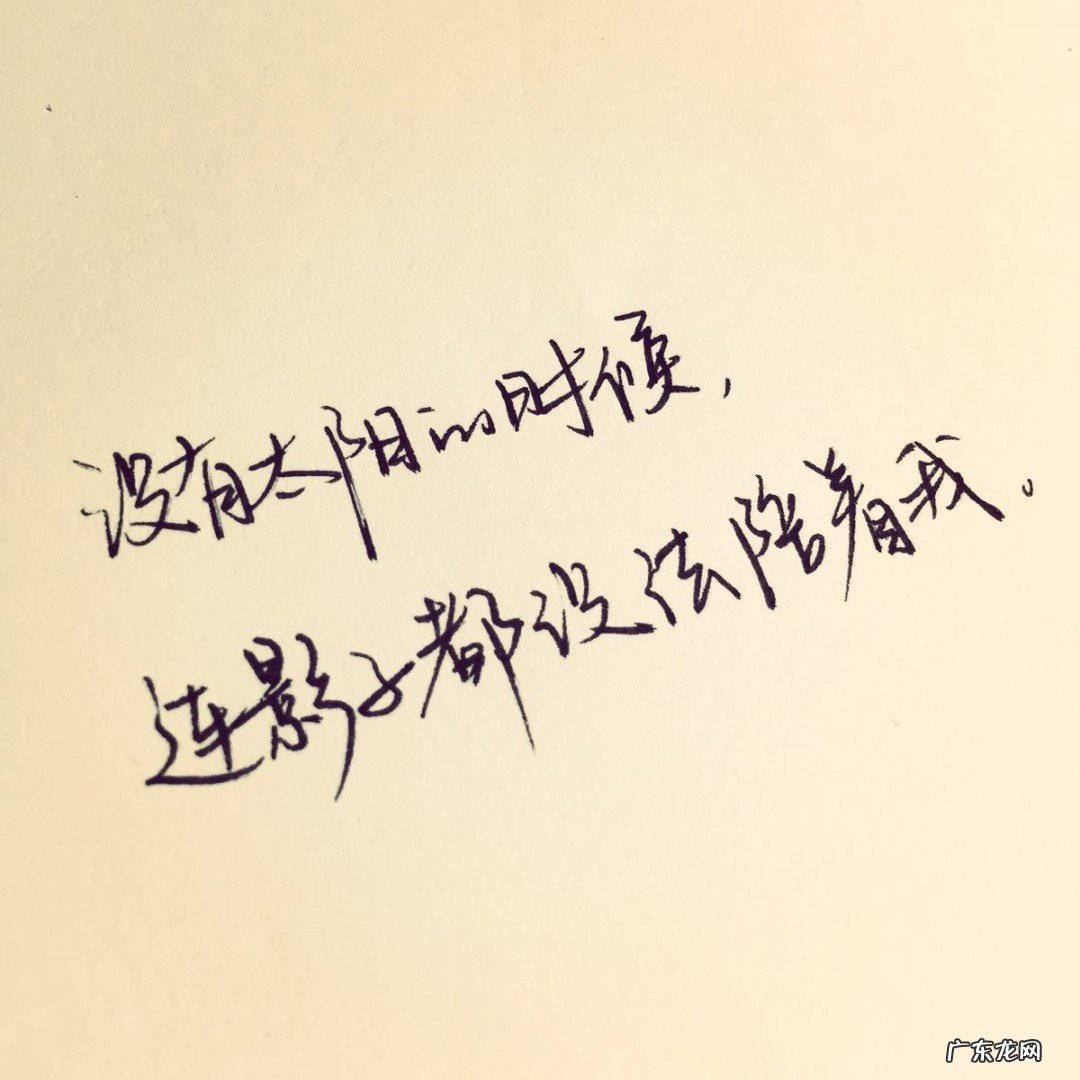 没有太阳的时候，
连影子都没法陪着我。
广东龙网